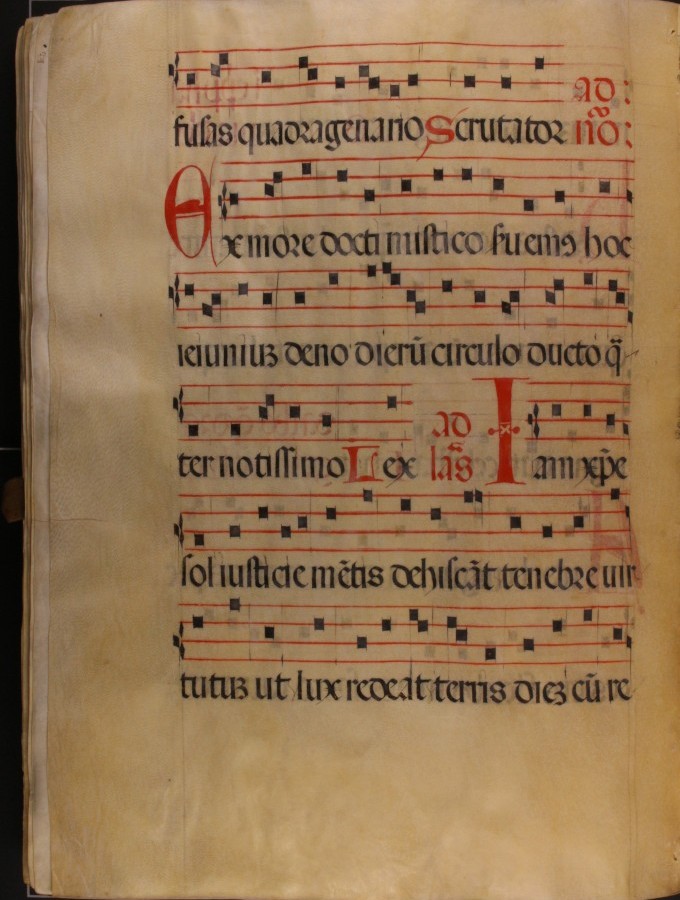 fusas quadragenario Scrutator ad nō:
Ex more docti mistico ſeruemꝰ hoc
ieiuniuȝ deno dierū circulo ducto q̄
ter notissimo Lex ad lās Iam xp̄e
sol iusticie mētis dehiscāt tenebre uir
tutuȝ ut lux redeat terris dieȝ cū re